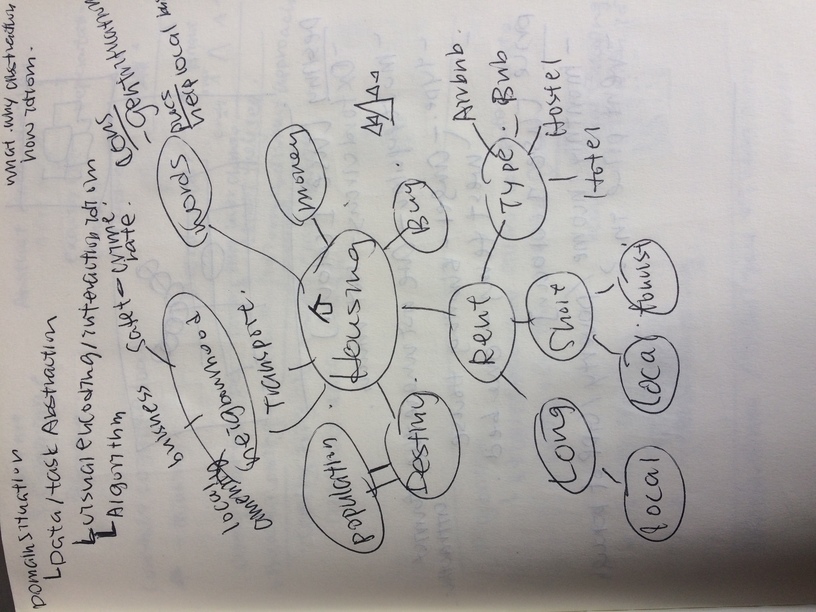 what. why abstraction
how idiom.
Domain situation
Data/task Abstraction
visual encoding/interaction idiom
Algorithm
cons
- Gentrification
pros
help local
words
money
Buy.
Housing
transport.
neighbourhood
business
Safet - crime
rate.
local
population
Rent
Type.
Airbnb.
Bnb
Hostel
Hotel
Short
local.
tourist
Long
local